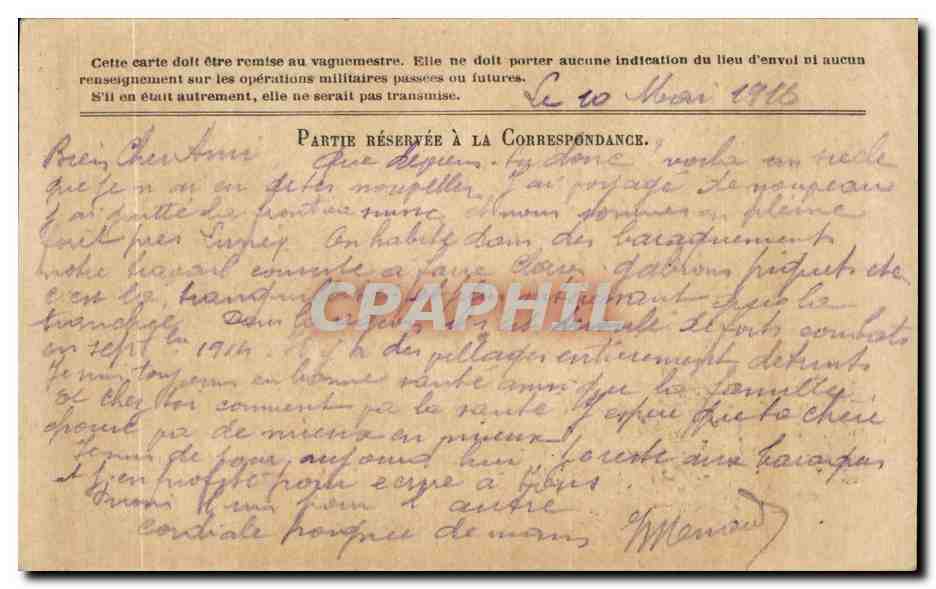 Cette carte doit être remise au vaguemestre. Elle ne doit porter aucune indication du lieu d'envoi ni aucun
renseignement sur les opérations militaires passées ou futures.
S'il en était autrement, elle ne serait pas transmise.
Le 10 Mai 1916
PARTIE RÉSERVÉE À LA CORRESPONDANCE.
Bien Cher Ami que deviens-tu donc voila un siecle
que je n'ai eu de tes nouvelles, j'ai voyagé de nouveau
j'ai quitté la et nous sommes en pleine
foret pres On habite dans des baraquements
notre travail consiste a faire claies gabions piquets etc
c'est la que la
tranchée de forts combats
en sept 1914 il y a des villages entierement detruits
Je suis toujours en bonne santé ainsi que la famille
et cher toi comment va la santé j'espere que ta chere
epouse va de mieux en mieux
Je suis de jour aujourd hui je reste aux baraques
et j'en profite pour ecrire a tous
l'un pour l autre
cordiale poignée de mains
CPAPHIL